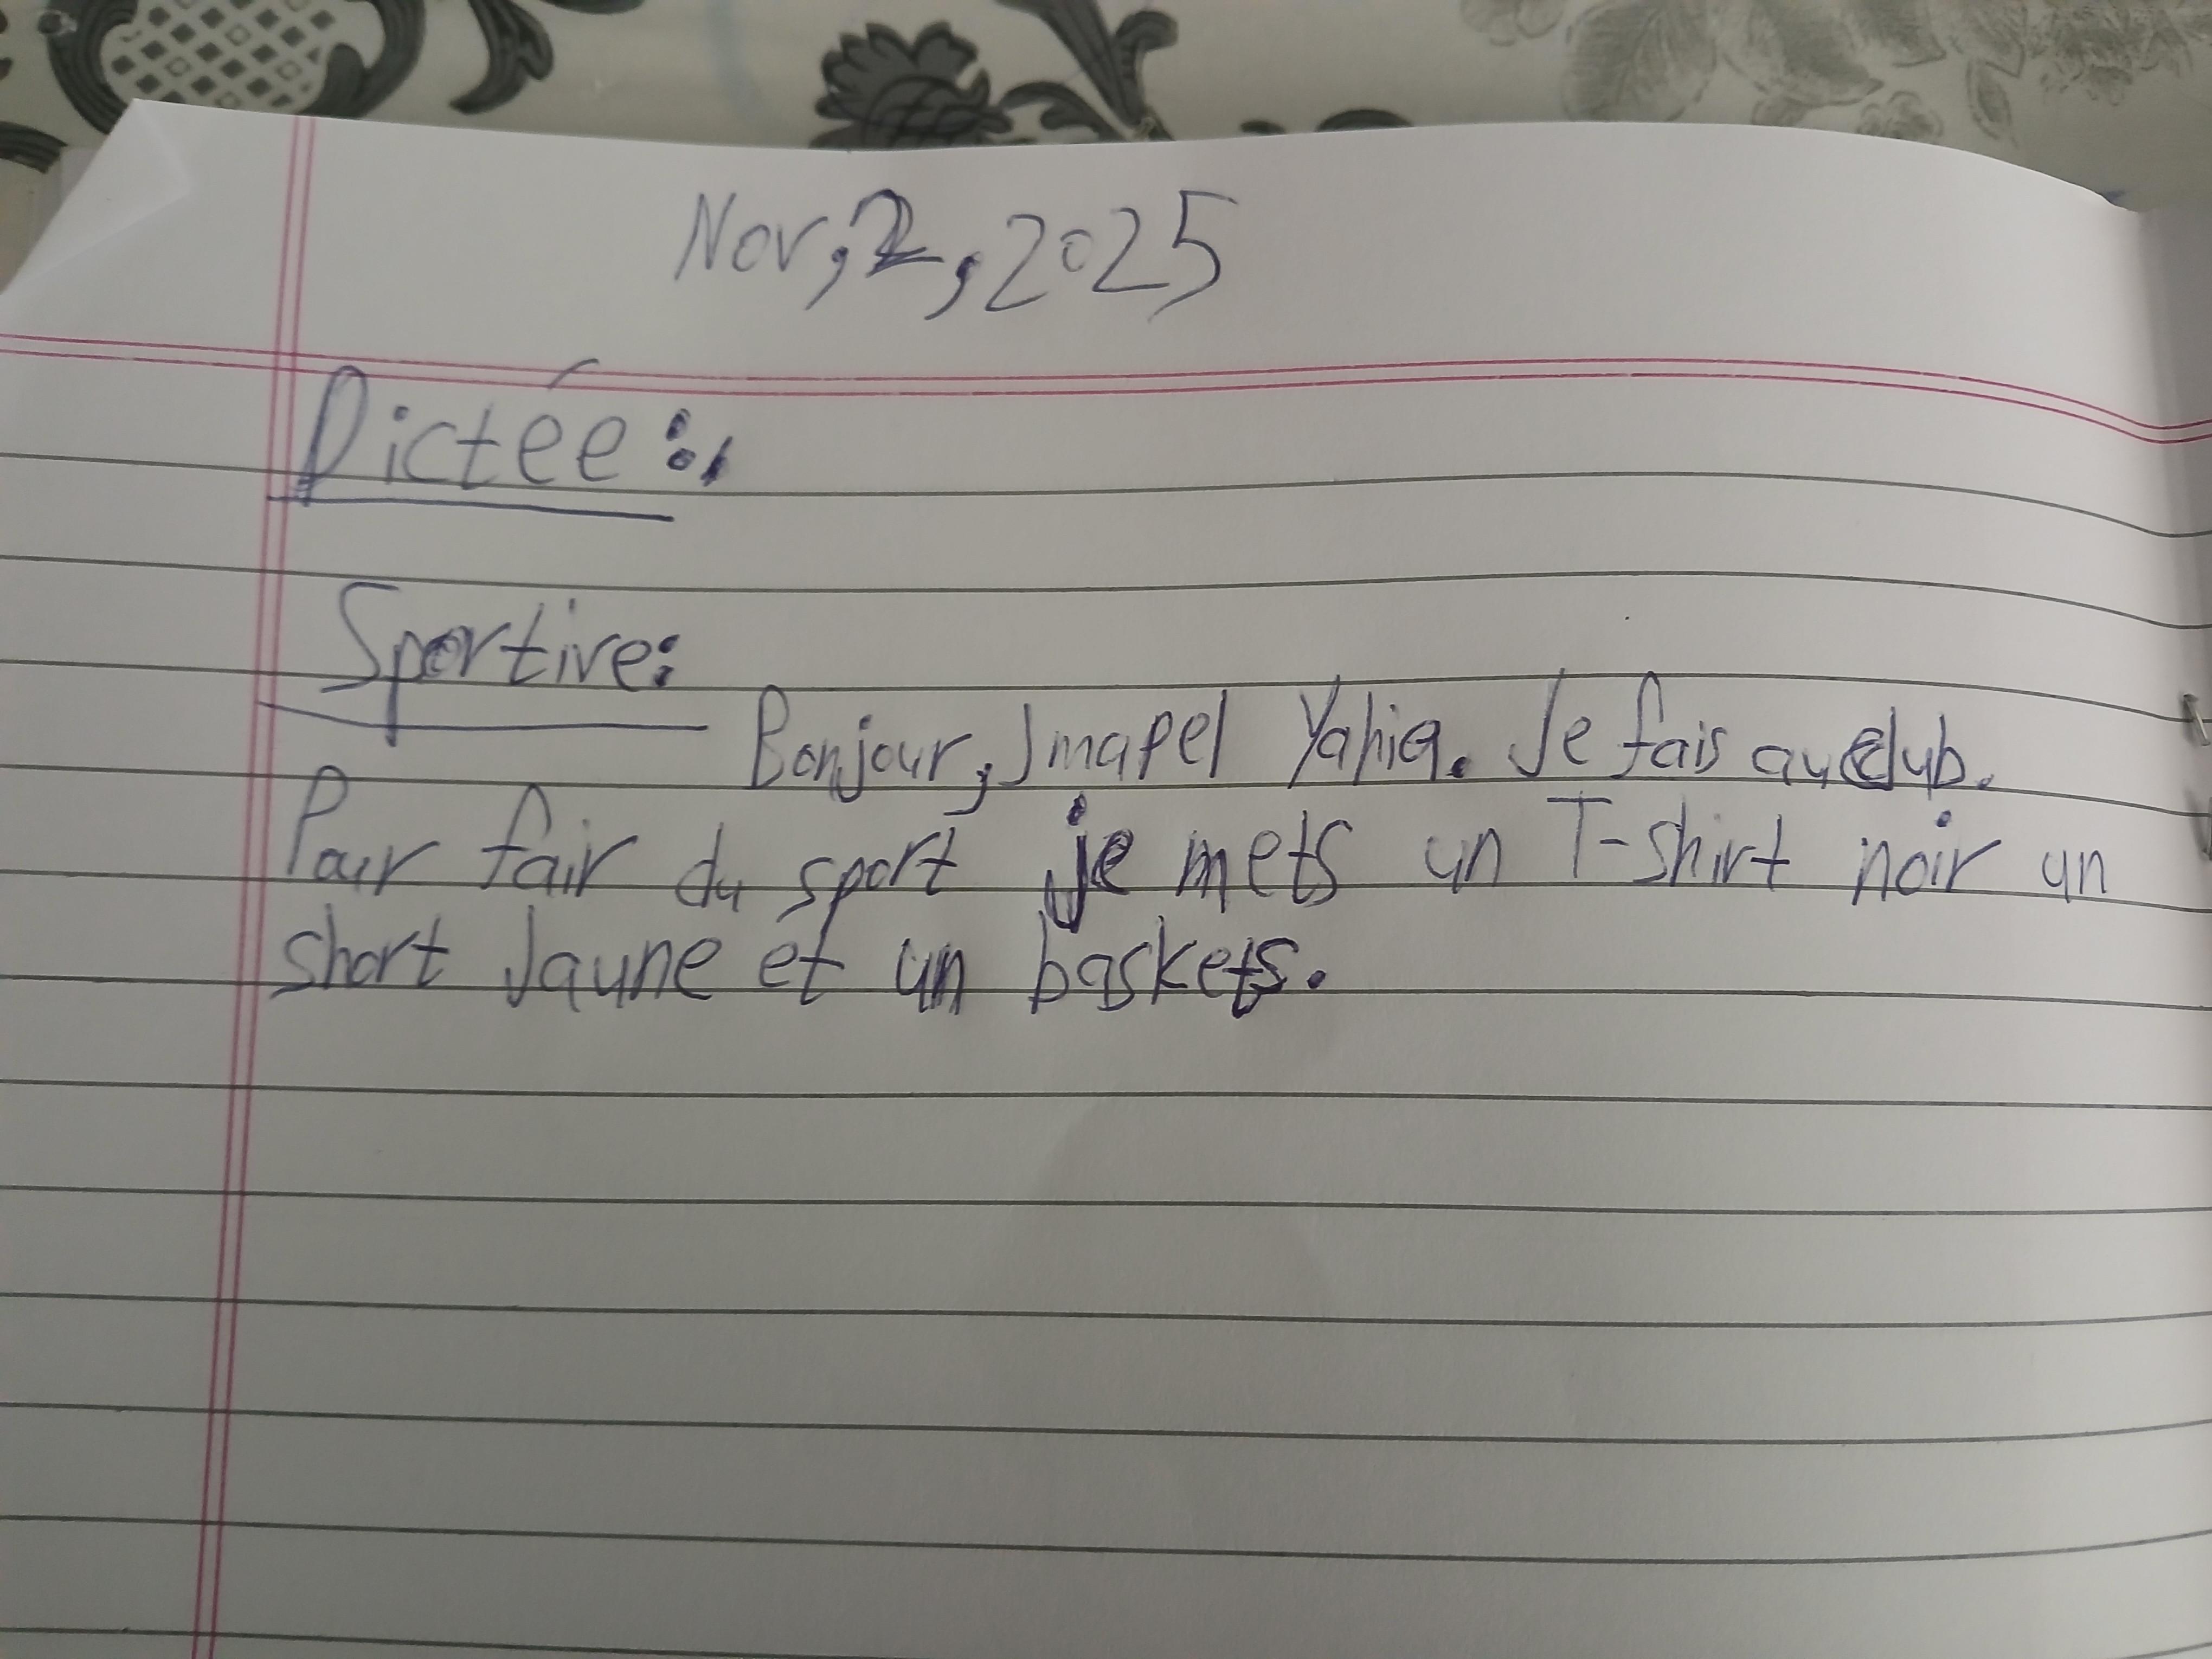 Nov, 2, 2025
Dictée:
Sportive:
Bonjour, J mapel Yahia. Je fais au club.
Pour fair du sport je mets un T-shirt noir un
short Jaune et un baskets.